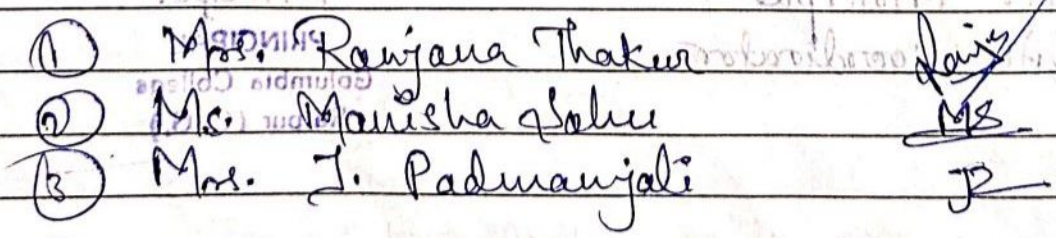 ① Mrs. Ranjana Thakur
② Ms. Manisha Sahu MS.
③ Mrs. J. Padmanjali JP